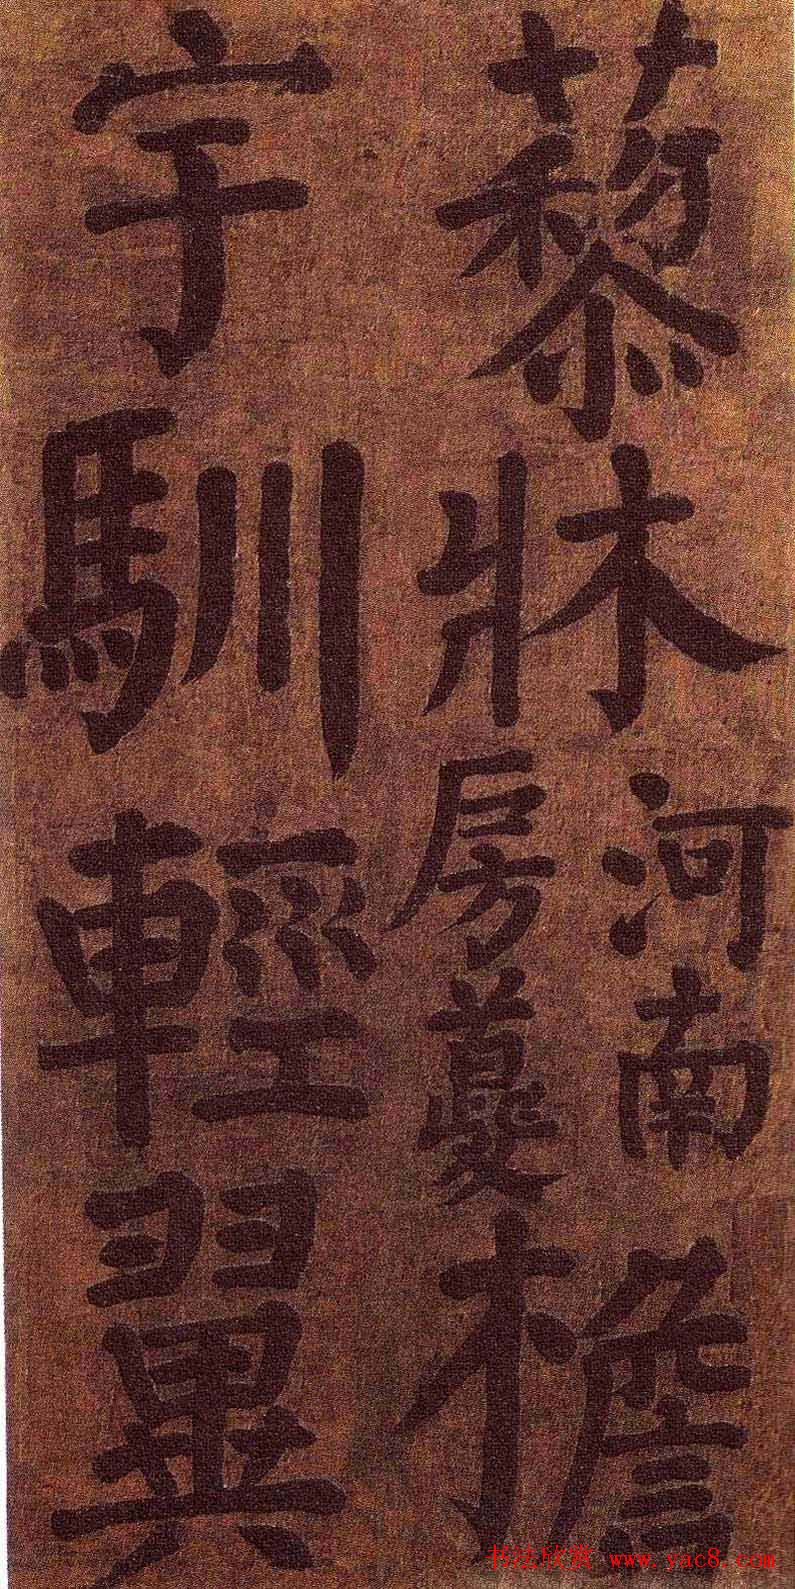 藜牀
河南
房蘷
檐
宇馴輕翼
书法欣赏 www.yac8.com